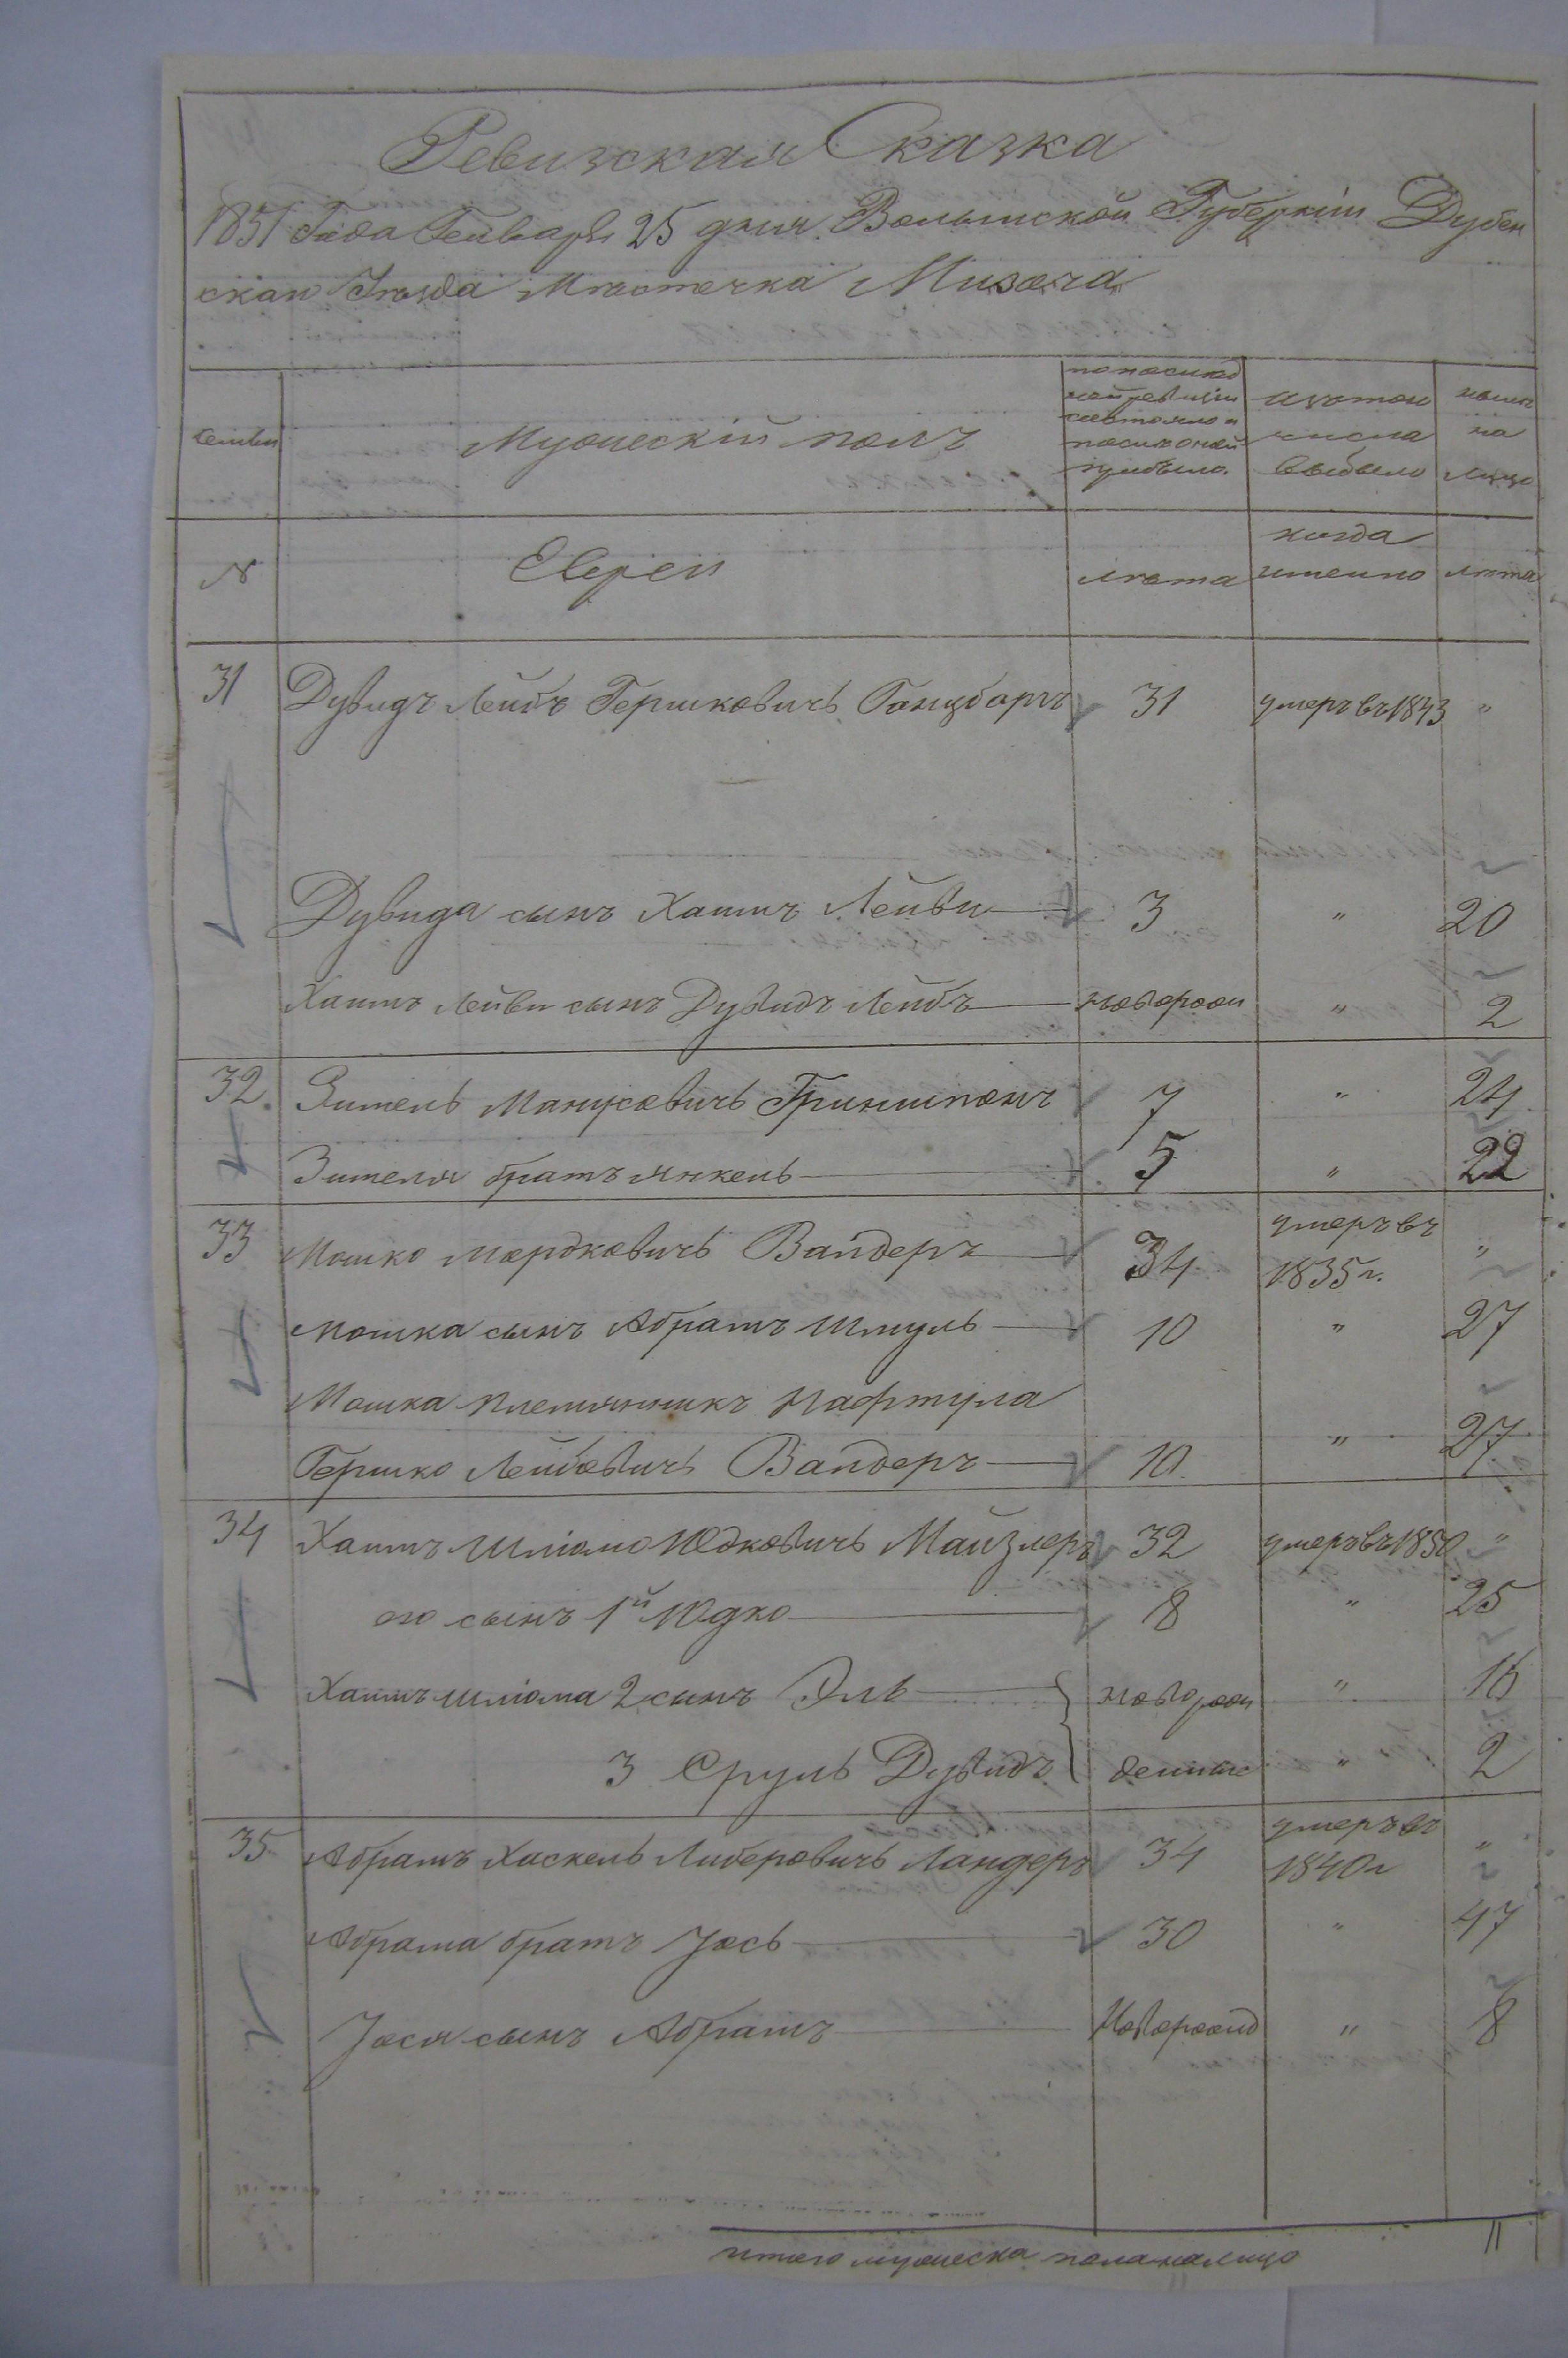 Ревизская Сказка
1851 Года Генваря 25 дня Волынской Губернiи Дубен
скаго Уезда Местечка Мизоча
семьи
Мужескiй полъ
по послед
ней ревизiи
состояло и
после оной
прибыло.
изъ того
числа
выбыло
ныне
на
лицо
N
Евреи
лета
когда
именно
лета
31 Дувидъ Лейбъ Гершковичъ Ганцбаргъ 31 умеръ въ 1843 "
Дувида сынъ Хаимъ Лейви 3 " 20
Хаимъ Лейви сынъ Дувидъ Лейбъ новорож " 2
32. Зители Манусовичъ Гриншпонъ 7 " 24
Зителя братъ Янкель 5 " 22
33 Мошко Мордковичъ Вайдеръ 34 умеръ въ 1835 г. "
Мошка сынъ Абрамъ Шмуль 10 " 27
Мошка племянникъ Нафтула
Гершко Лейбовичъ Вайдеръ 10 " 27
34 Хаимъ Шлiомо Юдковичъ Майзлеръ 32 умеръ въ 1850 "
его сынъ 1й Юдко 8 " 25
Хаимъ Шлiома 2 сынъ Эль новорож " 16
3 Сруль Дувидъ денные " 2
35 Абрамъ Хаскель Либеровичъ Ландеръ 34 умеръ въ 1840 г "
Абрама братъ Iось 30 " 47
Iося сынъ Абрамъ Новорожд " 8
итого мужеска пола налицо 11